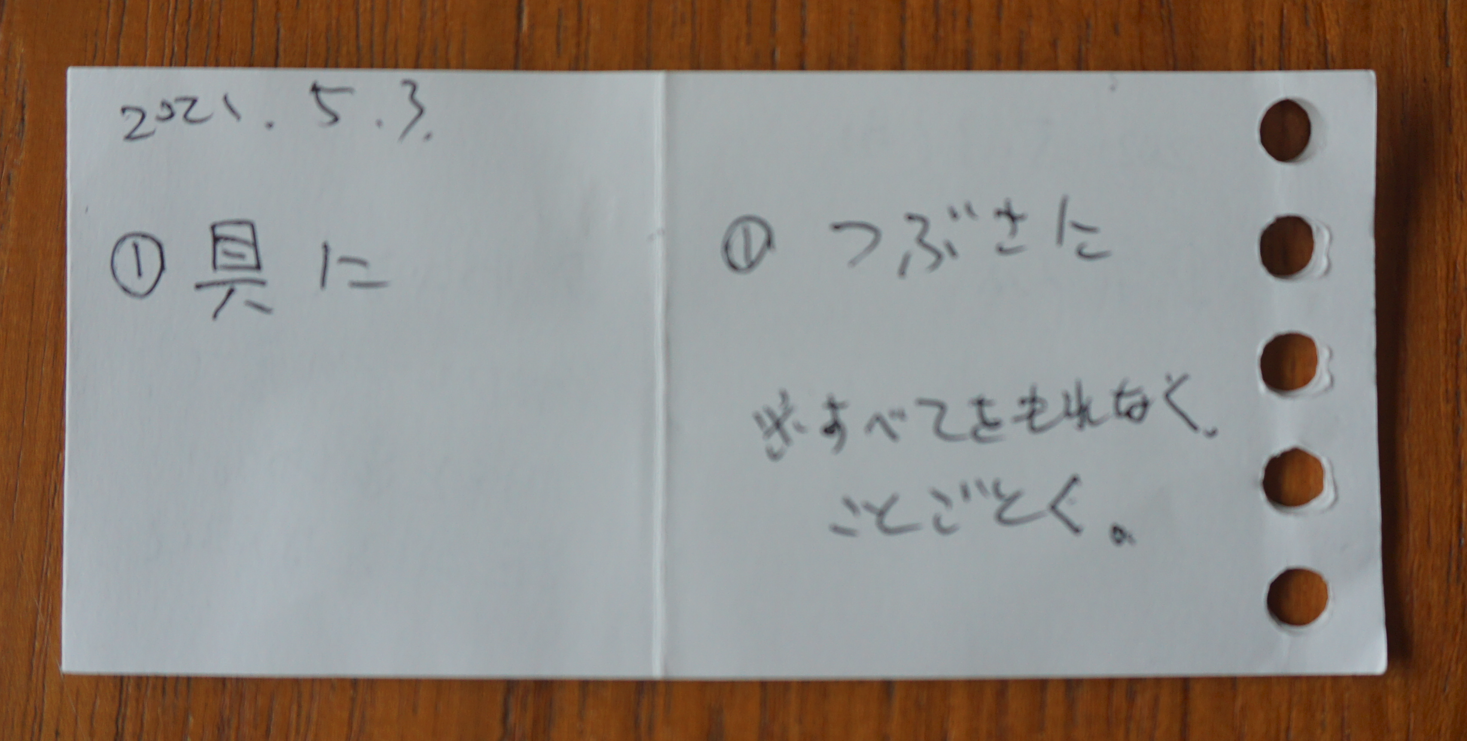 2021.5.3.
① 具に
① つぶさに
※すべてをもれなく、
ことごとく。